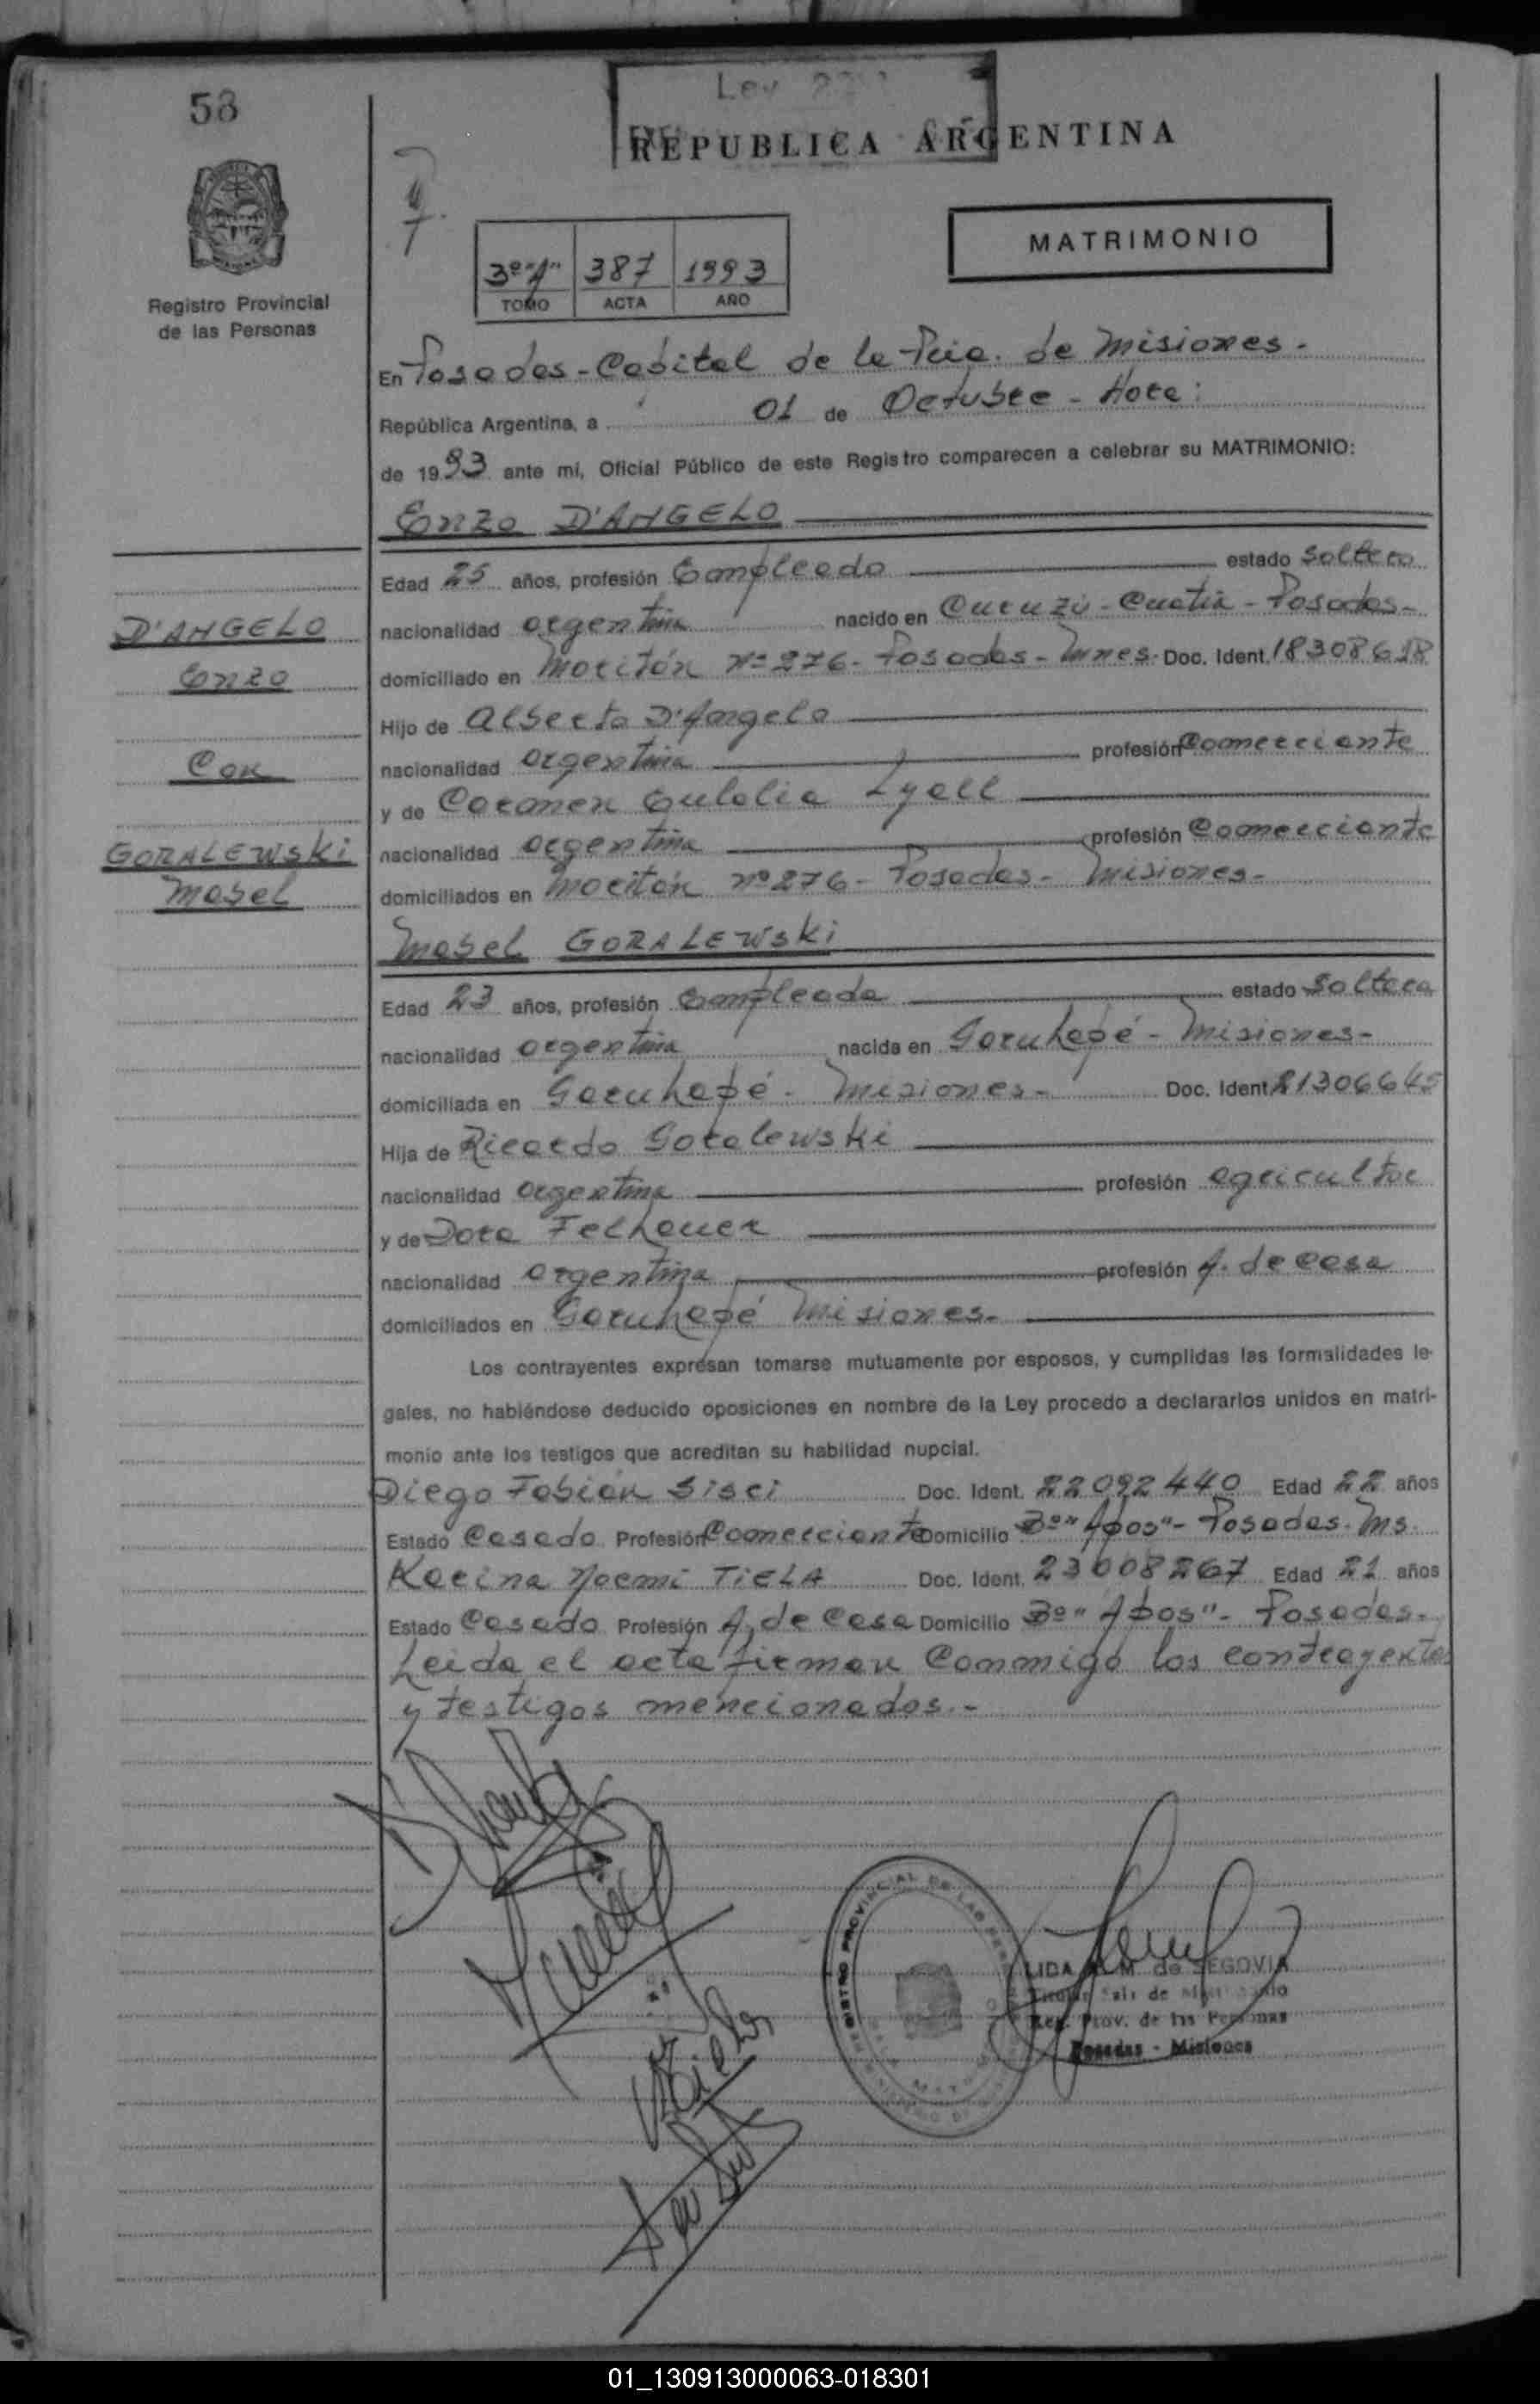 58
Ley
REPUBLICA ARGENTINA
MATRIMONIO
Registro Provincial
de las Personas
3º "A" 387 1993
TOMO ACTA AÑO
En Posadas - Capital de la Pcia. de Misiones -
República Argentina, a 01 de Octubre - Hora:
de 1993 ante mí, Oficial Público de este Registro comparecen a celebrar su MATRIMONIO:
Enzo D'ANGELO
Edad 25 años, profesión Empleado estado soltero
D'ANGELO
Enzo
Con
GORALEWSKi
Mabel
nacionalidad argentina nacido en Curuzú - Cuatiá - Posadas -
domiciliado en Moritán Nº 276 - Posadas - Mnes. Doc. Ident. 18308618
Hijo de Alberto D'Angelo
nacionalidad argentina profesión Comerciante
y de Carmen Eulalia Lyall
nacionalidad argentina profesión Comerciante
domiciliados en Moritán nº 276 - Posadas - Misiones -
Mabel GORALEWSKi
Edad 23 años, profesión Empleada estado Soltera
nacionalidad argentina nacida en Garuhapé - Misiones -
domiciliada en Garuhapé - Misiones - Doc. Ident. 21306645
Hija de Ricardo Goralewski
nacionalidad argentina profesión agricultor
y de Dora Felhauer
nacionalidad argentina profesión A. de Casa
domiciliados en Garuhapé Misiones -
Los contrayentes expresan tomarse mutuamente por esposos, y cumplidas las formalidades le-
gales, no habiéndose deducido oposiciones en nombre de la Ley procedo a declararlos unidos en matri-
monio ante los testigos que acreditan su habilidad nupcial.
Diego Fabián Sisci Doc. Ident. 22092440 Edad 22 años
Estado Casado Profesión Comerciante Domicilio Bº "Apos" - Posadas - Ms.
Karina Noemí TiELA Doc. Ident. 23008267 Edad 21 años
Estado Casada Profesión A. de Casa Domicilio Bº "Apos" - Posadas -
Leída el acta firman Conmigo los contrayentes
y testigos mencionados. -
REGISTRO PROVINCIAL DE LAS PERSONAS
LIDA M. de SEGOVIA
Titular Sala de
Reg. Prov. de las Personas
Posadas - Misiones
01_130913000063-018301